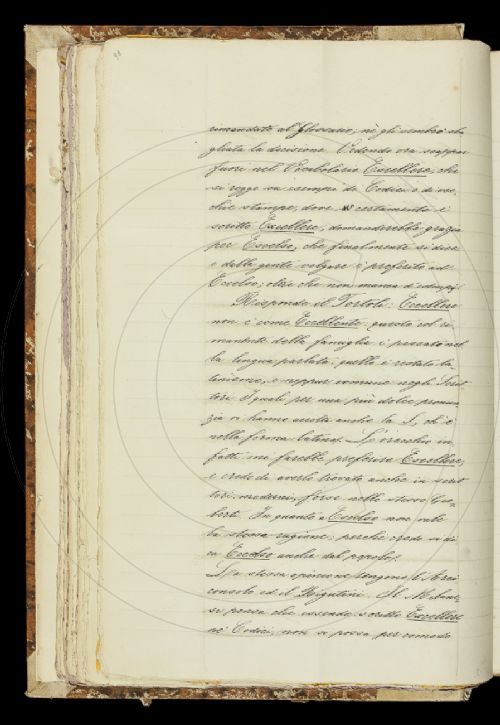 rimandato al Glossario; nè gli sembrò sba
gliata la decisione. Vedendo ora scappar
fuori nel Vocabolario Escellere, che
si regge su esempi di Codici e di vec
chie stampe, dove certamente è
scritto Escellere, domanderebbe grazia
per Escelso, che finalmente si dice
e dalla gente volgare è preferito ad
Eccelso; oltre che non manca d'esempj.
Risponde il Tortoli: Eccellere
non è come Eccellente: questo col ri
manente della famiglia è passato nel
la lingua parlata; quello è restato la
tinismo, e neppur comune negli Scrit
tori. I quali per una più dolce pronun
zia vi hanno anche la S, ch'è
nella forma latina. L'orecchio in
fatti mi farebbe preferire Escellere,
e credo di averlo trovato anche in scrit
tori moderni, forse nello stesso Gio
berti. In quanto a Escelso non vale
la stessa ragione; perchè credo si di
ca Eccelso anche dal popolo.
La stessa opinione tengono l'Arci
consolo ed il Rigutini. Il
si pensa che essendo scritto Escellere
ne' Codici, non si possa per comodo